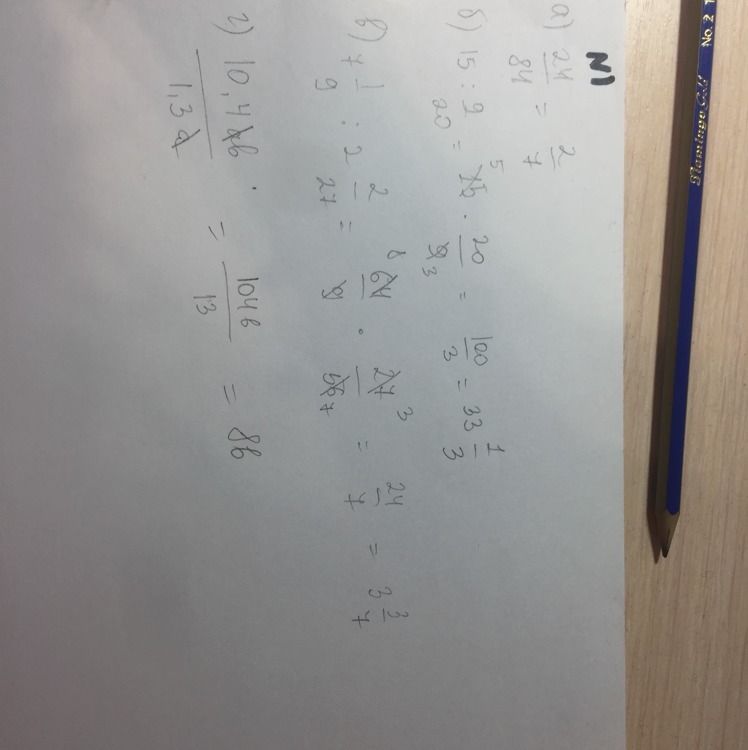 N1
а) 24/84 = 2/7
б) 15 : 9/20 = 15 5 · 20/9 3 = 100/3 = 33 1/3
в) 7 1/9 : 2 2/27 = 8 64/9 · 27 3/56 7 = 24/7 = 3 3/7
г) 10,4ab/1,3a · = 104b/13 = 8b
Flamingo Gold No. 2